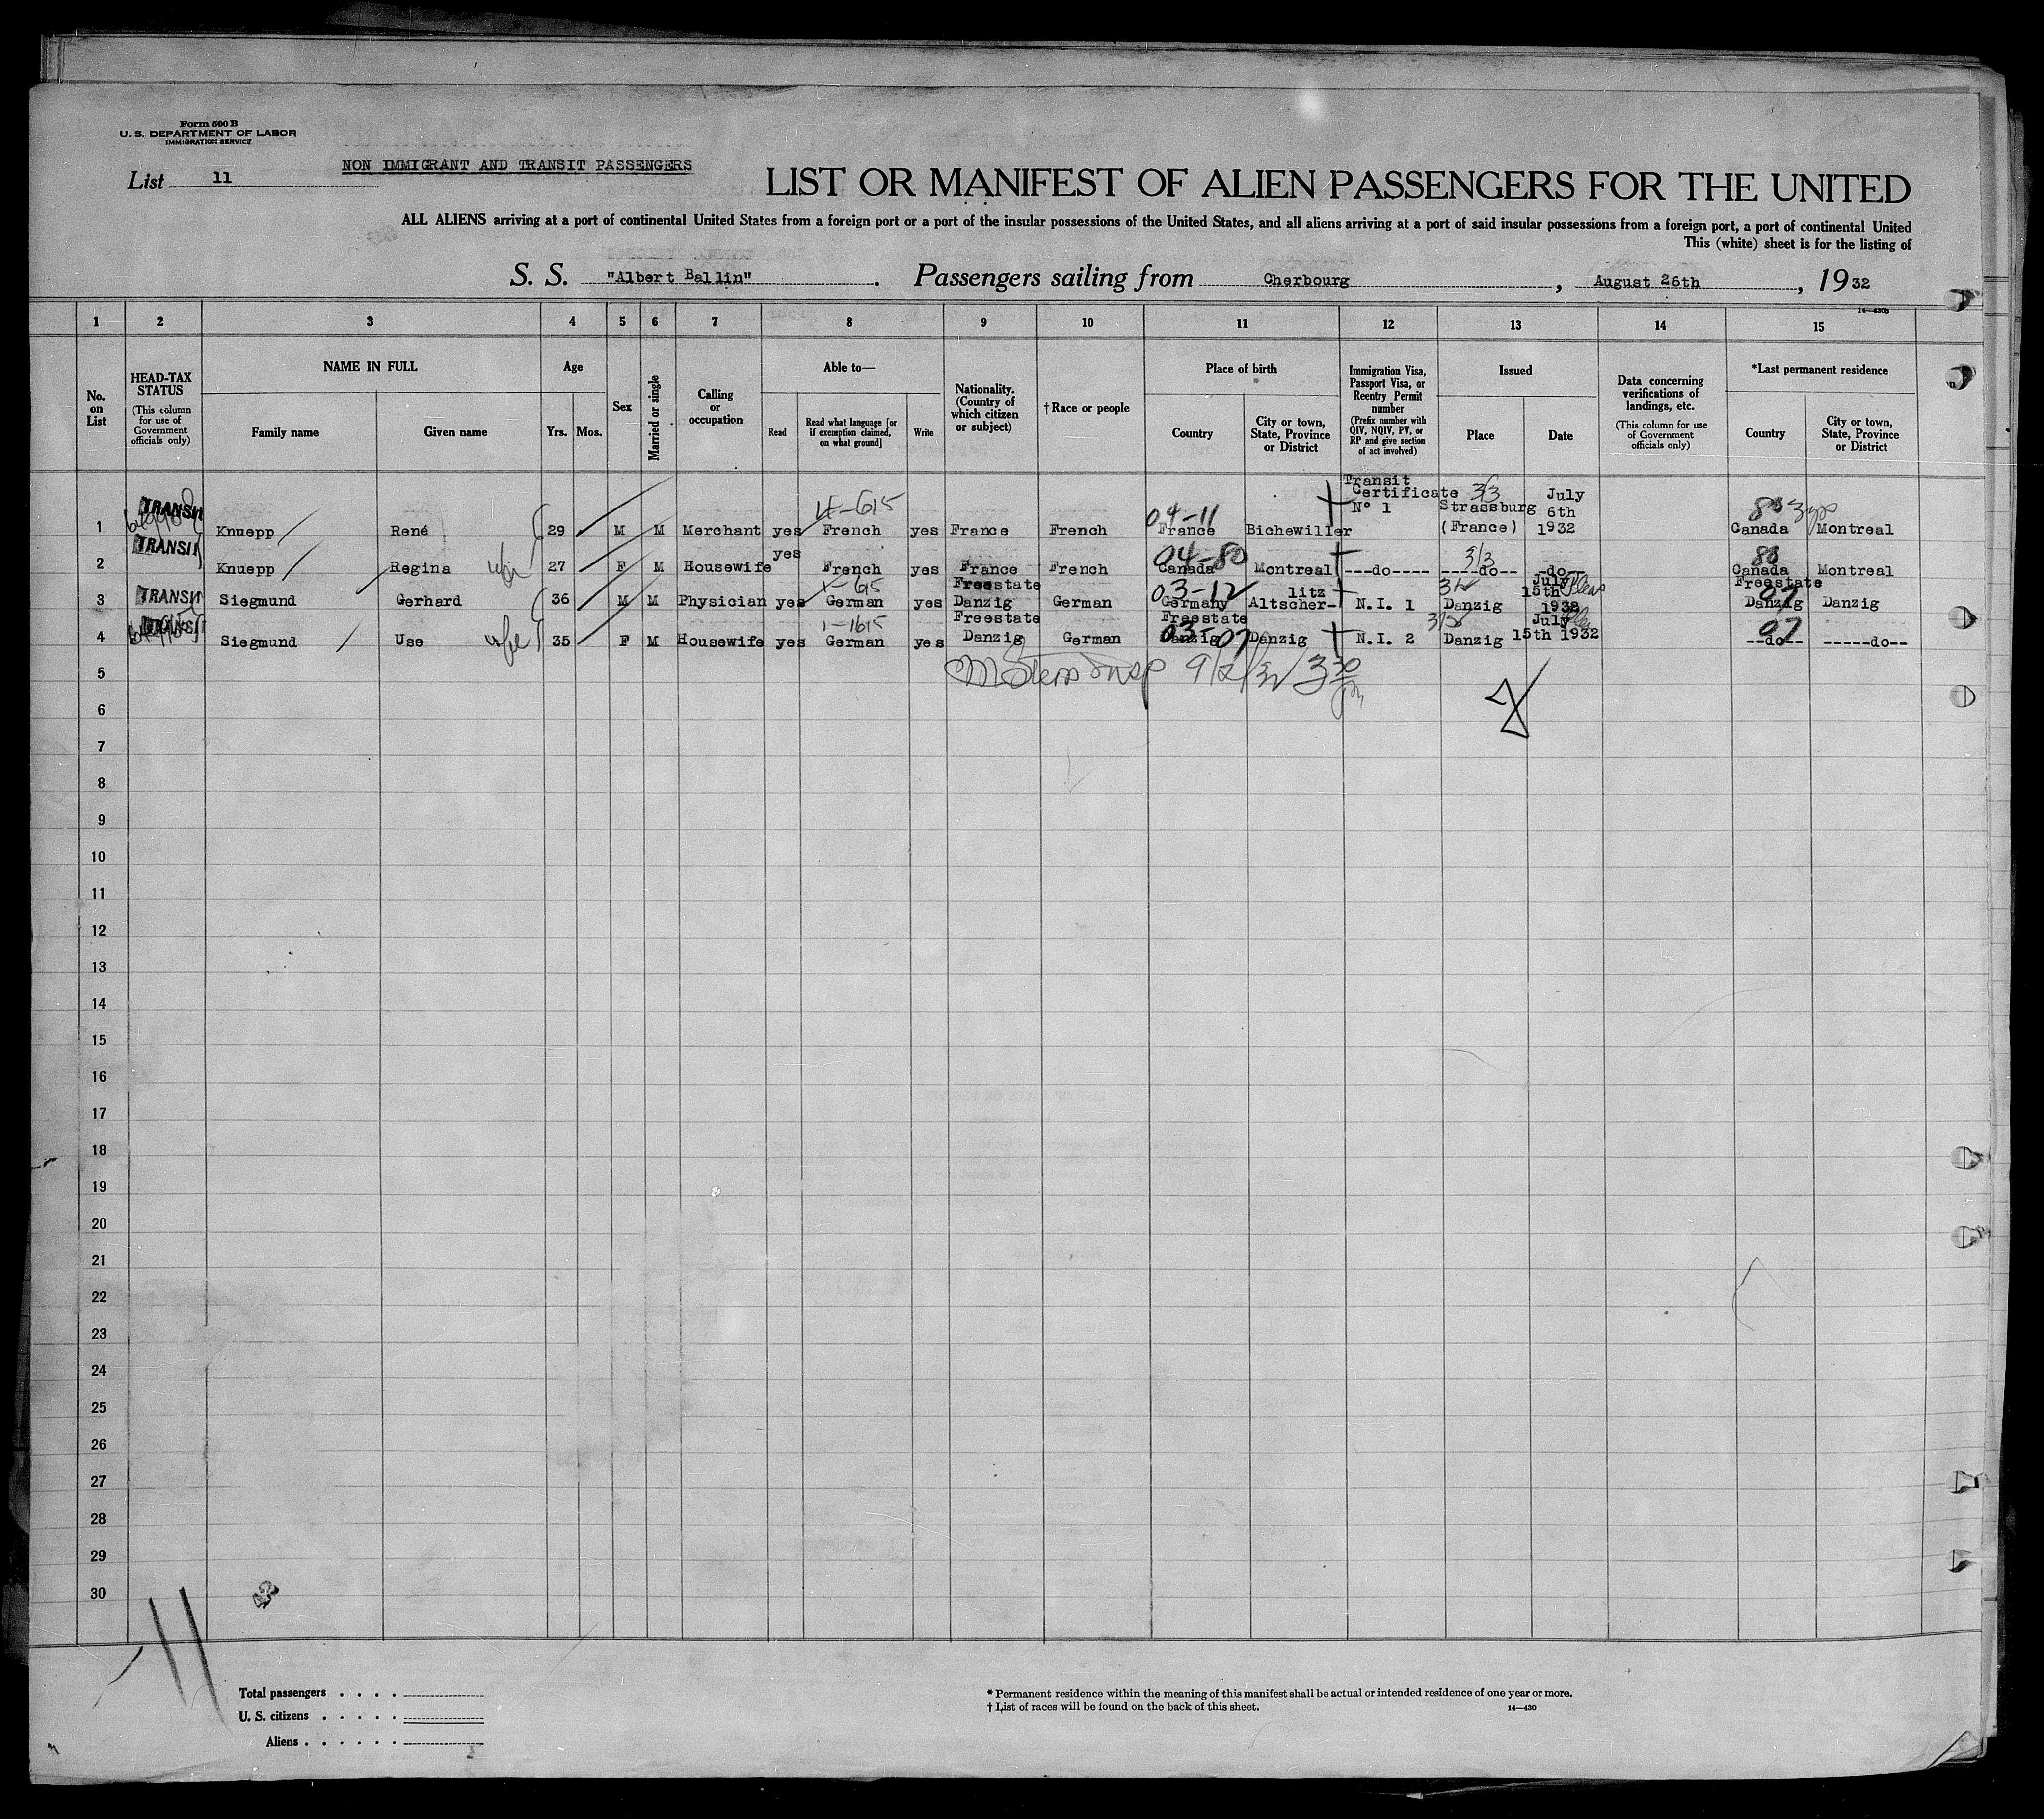 Form 500 B
U. S. DEPARTMENT OF LABOR
IMMIGRATION SERVICE
NON IMMIGRANT AND TRANSIT PASSENGERS
List 11
LIST OR MANIFEST OF ALIEN PASSENGERS FOR THE UNITED
ALL ALIENS arriving at a port of continental United States from a foreign port or a port of the insular possessions of the United States, and all aliens arriving at a port of said insular possessions from a foreign port, a port of continental United
This (white) sheet is for the listing of
S. S. "Albert Ballin". Passengers sailing from Cherbourg, August 26th, 1932
14—430b
1 2 3 4 5 6 7 8 9 10 11 12 13 14 15
No. on List
HEAD-TAX STATUS
(This column for use of Government officials only)
NAME IN FULL
Family name
Given name
Age
Yrs. Mos.
Sex
Married or single
Calling or occupation
Able to—
Read
Read what language [or if exemption claimed, on what ground]
Write
Nationality. (Country of which citizen or subject)
† Race or people
Place of birth
Country
City or town, State, Province or District
Immigration Visa, Passport Visa, or Reentry Permit number
(Prefix number with QIV, NQIV, PV, or RP and give section of act involved)
Issued
Place
Date
Data concerning verifications of landings, etc.
(This column for use of Government officials only)
*Last permanent residence
Country
City or town, State, Province or District
TRANSIT 4-615 04-11 Transit Certificate N° 1 3/3 80
1 Knuepp René 29 M M Merchant yes French yes France French France Bichewiller Strassburg (France) July 6th 1932 Canada Montreal
TRANSIT 04-80 3/3 80
2 Knuepp Regina wife 27 F M Housewife yes French yes France French Canada Montreal ---do---- ----do-- -do- Canada Montreal
TRANSIT 03-12 07
3 Siegmund Gerhard 36 M M Physician yes German yes Freestate Danzig German Germany Altscher-litz N.I. 1 Danzig July 15th 1932 Freestate Danzig Danzig
TRANSIT 1-1615 03-07 07
4 Siegmund Use wife 35 F M Housewife yes German yes Freestate Danzig German Freestate Danzig Danzig N.I. 2 Danzig July 15th 1932 --do-- -----do--
5 Insp 9/2/32 3 30
6
7
8
9
10
11
12
13
14
15
16
17
18
19
20
21
22
23
24
25
26
27
28
29
30
11
Total passengers . . . .
U. S. citizens . . . . .
Aliens . . . . . .
* Permanent residence within the meaning of this manifest shall be actual or intended residence of one year or more.
† List of races will be found on the back of this sheet.
14—430